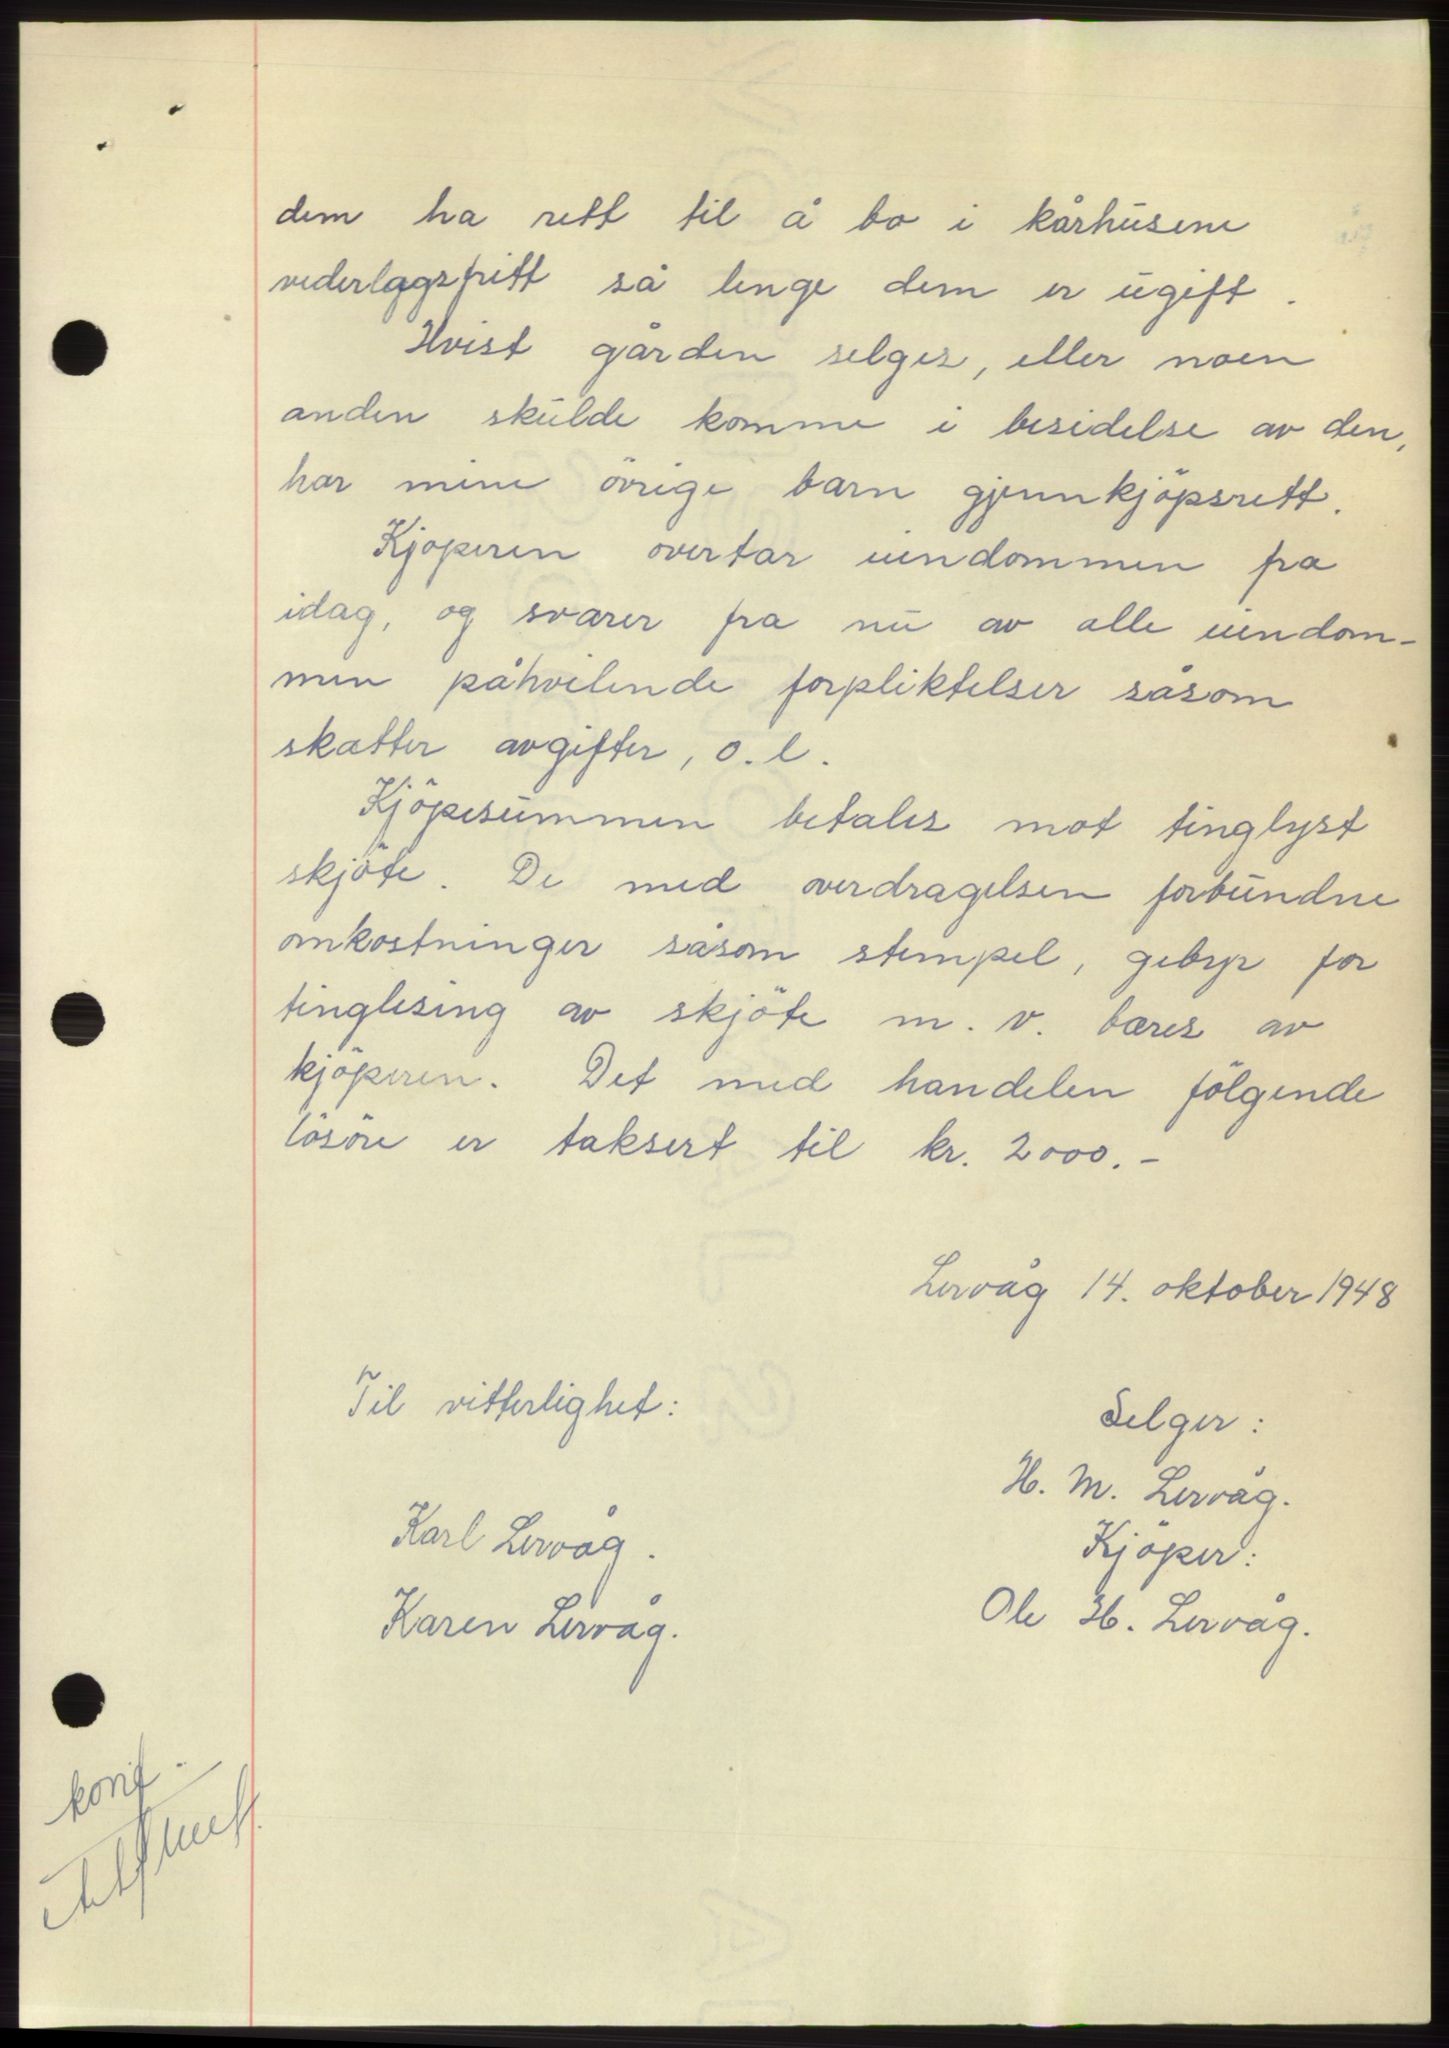 dem ha rett til å bo i kårhusene
vederlagsfritt så lenge dem er ugift.
Hvist gården selges, eller noen
anden skulde komme i besidelse av den,
har mine övrige barn gjennkjöpsrett.
Kjöperen overtar eiendommen fra
idag, og svarer fra nu av alle eiendom-
men påhvilende forpliktelser såsom
skatter avgifter, o.l.
Kjöpesummen betales mot tinglyst
skjöte. De med overdragelsen forbundne
omkostninger såsom stempel, gebyr for
tinglesing av skjöte m.v. bæres av
kjöperen. Det med handelen fölgende
lösöre er taksert til kr. 2000.-
Lervåg 14. oktober 1948
Til vitterlighet:
Selger:
H. M. Lervåg.
Karl Lervåg.
Kjöper:
Karen Lervåg.
Ole H. Lervåg.